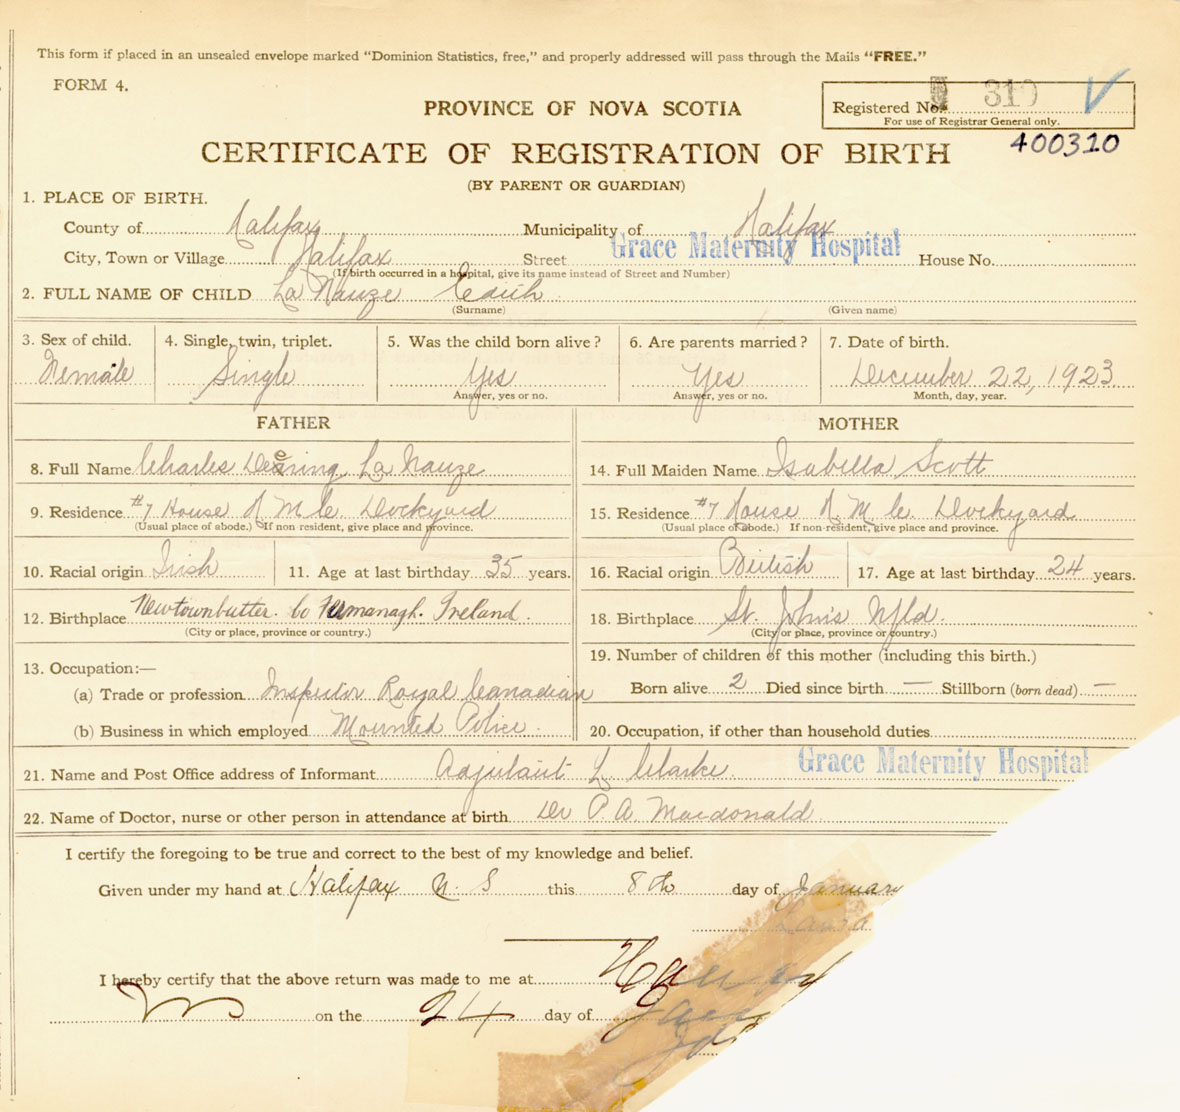 This form if placed in an unsealed envelope marked "Dominion Statistics, free," and properly addressed will pass through the Mails "FREE."
FORM 4.
PROVINCE OF NOVA SCOTIA
Registered No. 310
For use of Registrar General only.
400310
CERTIFICATE OF REGISTRATION OF BIRTH
(BY PARENT OR GUARDIAN)
1. PLACE OF BIRTH.
County of Halifax Municipality of Halifax
City, Town or Village Halifax Street Grace Maternity Hospital House No.
(If birth occurred in a hospital, give its name instead of Street and Number)
2. FULL NAME OF CHILD La Nauze Edith
(Surname) (Given name)
3. Sex of child. 4. Single, twin, triplet. 5. Was the child born alive? 6. Are parents married? 7. Date of birth.
Female Single Yes Yes December 22, 1923
Answer, yes or no. Answer, yes or no. Month, day, year.
FATHER MOTHER
8. Full Name Charles Deering La Nauze 14. Full Maiden Name Isabella Scott
9. Residence #7 House H M C Dockyard 15. Residence #7 House H M C Dockyard
(Usual place of abode.) If non resident, give place and province. (Usual place of abode.) If non-resident, give place and province.
10. Racial origin Irish 11. Age at last birthday 35 years. 16. Racial origin British 17. Age at last birthday 24 years.
12. Birthplace Newtownbutter. Co Fermanagh. Ireland. 18. Birthplace St. John's Nfld.
(City or place, province or country.) (City or place, province or country.)
13. Occupation:— 19. Number of children of this mother (including this birth.)
(a) Trade or profession Inspector Royal Canadian Born alive 2 Died since birth — Stillborn (born dead) —
(b) Business in which employed Mounted Police. 20. Occupation, if other than household duties
21. Name and Post Office address of Informant Adjutant L Clarke. Grace Maternity Hospital
22. Name of Doctor, nurse or other person in attendance at birth Dr P. A. Macdonald
I certify the foregoing to be true and correct to the best of my knowledge and belief.
Given under my hand at Halifax N. S this 8th day of January
I hereby certify that the above return was made to me at
on the 24 day of